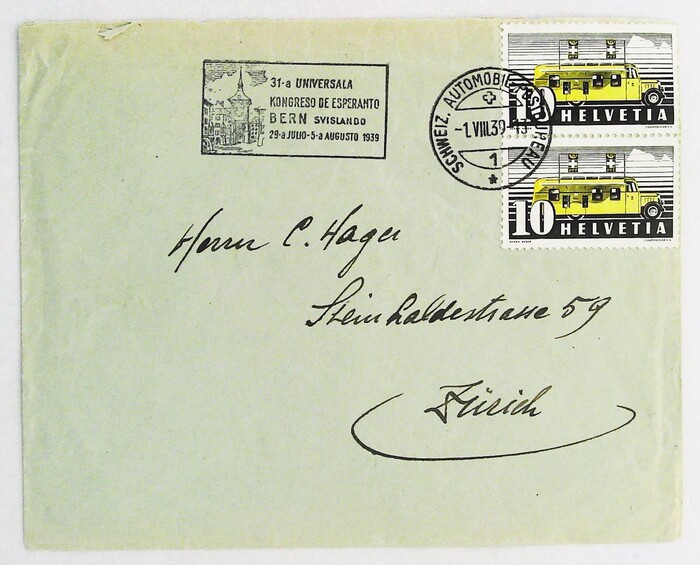 31-a UNIVERSALA
KONGRESO DE ESPERANTO
BERN SVISLANDO
29-a JULIO-5-a AUGUSTO 1939
SCHWEIZ. AUTOMOBIL-POSTBUREAU
-1.VIII.39-13
1
10 HELVETIA
10 HELVETIA
Herrn C. Hager
Steinhaldestrasse 59
Zürich